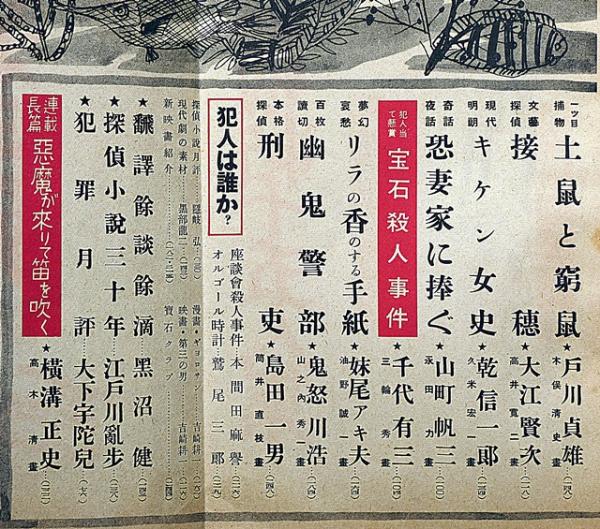 一ツ目捕物 土鼠と窮鼠 ★戸川貞雄 木俣清史畫 (一四八)
文藝探偵 接穂 ★大江賢次 高井寛二畫 (一一八)
現代明朗 キケン女史 ★乾信一郎 久米宏一畫 (二四八)
奇話夜話 恐妻家に捧ぐ ★山町帆三 永田力畫 (一〇〇)
犯人当て懸賞 宝石殺人事件 ★千代有三 三輪秀畫 (二〇四)
夢幻哀愁 リラの香のする手紙 ★妹尾アキ夫 油野誠一畫
百枚讀切 幽鬼警部 ★鬼怒川浩 山之内秀一畫 (一八四)
本格探偵 刑吏 ★島田一男 筒井直枝畫 (四八)
犯人は誰か?
座談會殺人事件…本間田麻譽 (二六)
オルゴール時計 鷲尾三郎 (二九)
探偵小説月評……隠岐弘
漫畫・ギョロサン……吉崎耕一
現代劇の素材……黒部龍二
映畫・第三の男……吉崎耕二
新映畫紹介
寶石クラブ
★飜譯餘談餘滴…黒沼健
★探偵小説三十年…江戸川亂歩 (三八)
★犯罪月評…大下宇陀兒 (七六)
連載長篇 惡魔が來りて笛を吹く ★横溝正史 高木清畫 (二二)